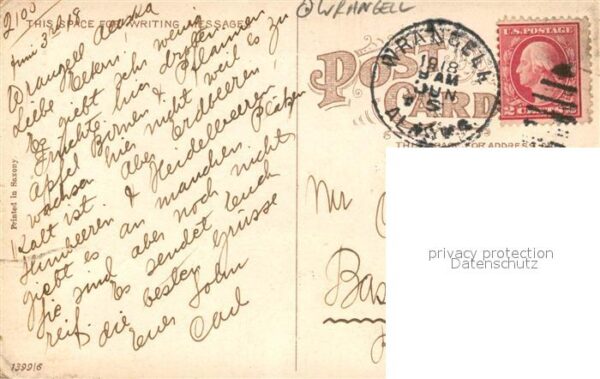 2100
THIS SPACE FOR WRITING MESSAGES
Wrangell Alaska
Juni 3 1918
Liebe Eltern:
Es giebt sehr wenig
Früchte hier droben
Apfel Birnen & Pflaumen
wachsen hier nicht weil es zu
Kalt ist. Aber Erdbeeren,
Himbeeren & Heidelbeeren
giebt es an manchen Plätzen
Sie sind aber noch nicht
reif. Es sendet Euch
die besten Grüsse
Euer Sohn
Carl
Printed in Saxony
13996
WRANGELL
POST CARD
WRANGELL
1918
9 AM
JUN
5
ALASKA
U.S. POSTAGE
2 CENTS 2
FOR ADDRESS
Mr
Bas
privacy protection
Datenschutz